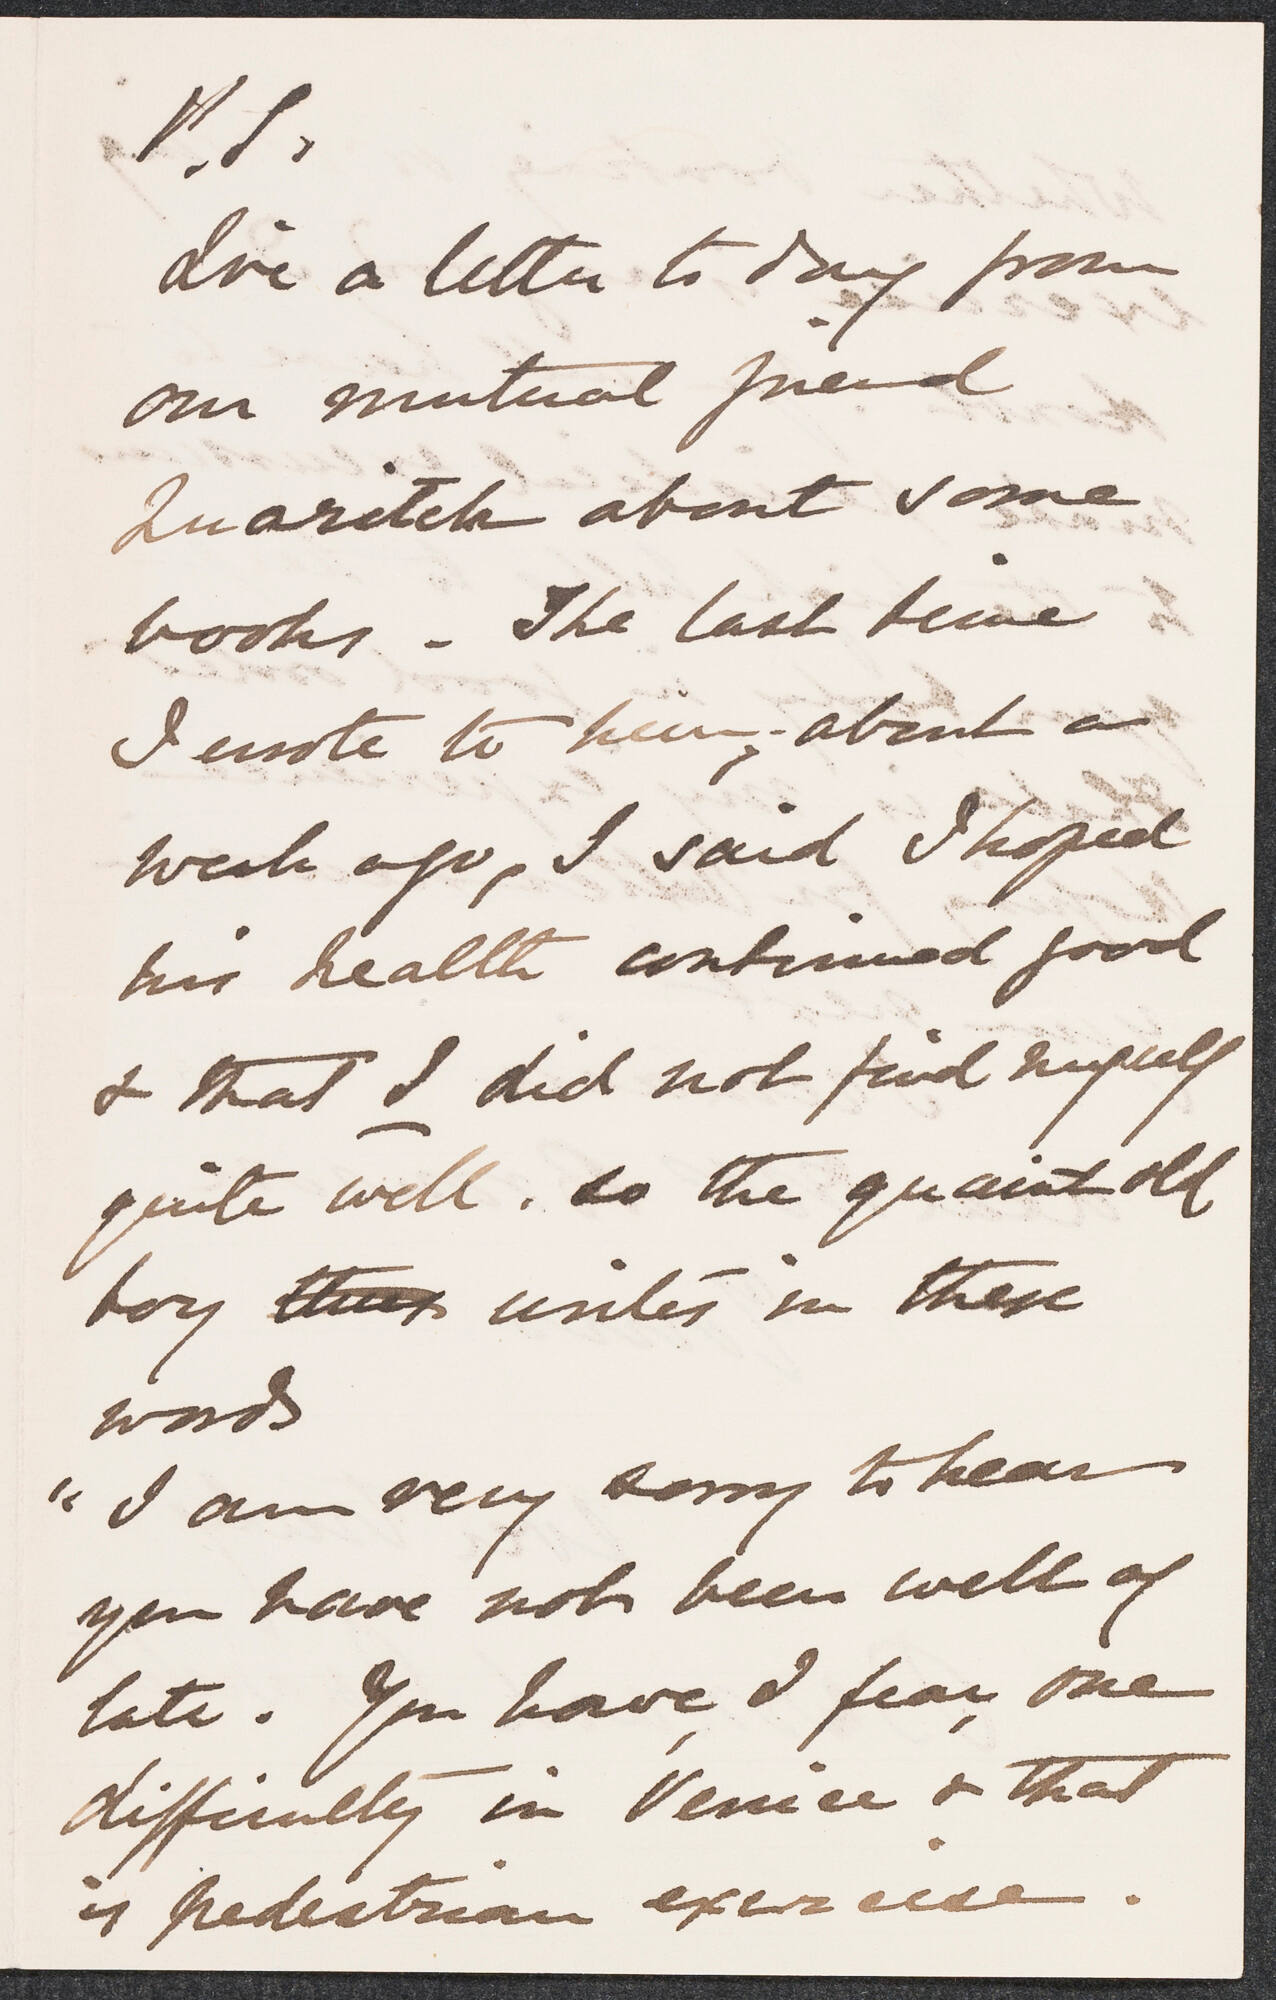 P.S.
I've a letter to day from
our mutual friend
Quaritch about some
books - The last time
I wrote to him, about a
week ago, I said I hoped
his health continued good
& that I did not find myself
quite well. so the quaint old
boy thus writes in these
words
"I am very sorry to hear
you have not been well of
late. You have, I fear, one
difficulty in Venice & that
is pedestrian exercise.